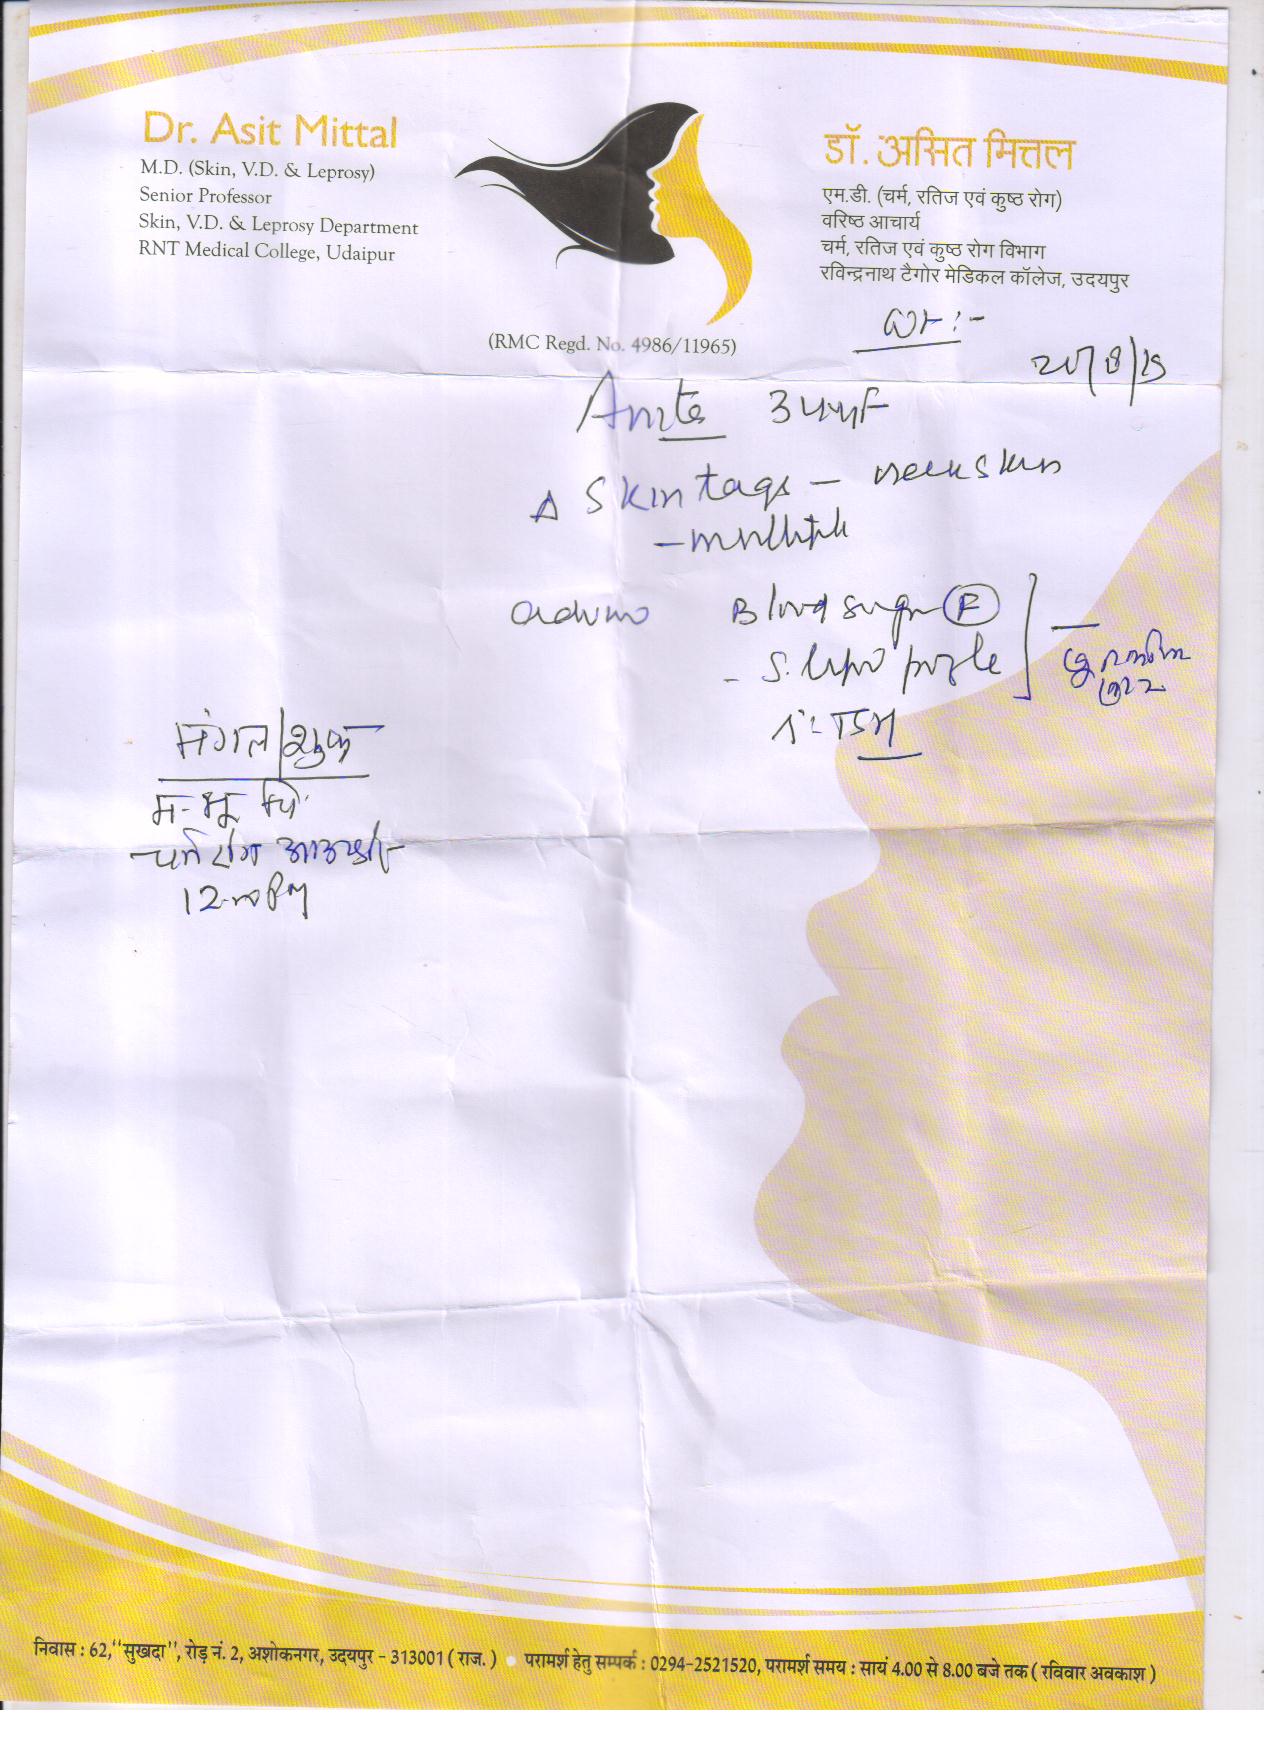 Dr. Asit Mittal
M.D. (Skin, V.D. & Leprosy)
Senior Professor
Skin, V.D. & Leprosy Department
RNT Medical College, Udaipur
डॉ. असित मित्तल
एम.डी. (चर्म, रतिज एवं कुष्ठ रोग)
वरिष्ठ आचार्य
चर्म, रतिज एवं कुष्ठ रोग विभाग
रविन्द्रनाथ टैगोर मेडिकल कॉलेज, उदयपुर
(RMC Regd. No. 4986/11965)
Δ Skin tags – neck skin
– multiple
Blood sugar (F)
- S. lipid profile
मंगल/शुक्र
चर्म रोग आउटडोर
निवास : 62,"सुखदा", रोड़ नं. 2, अशोकनगर, उदयपुर - 313001 ( राज. ) • परामर्श हेतु सम्पर्क : 0294-2521520, परामर्श समय : सायं 4.00 से 8.00 बजे तक ( रविवार अवकाश )